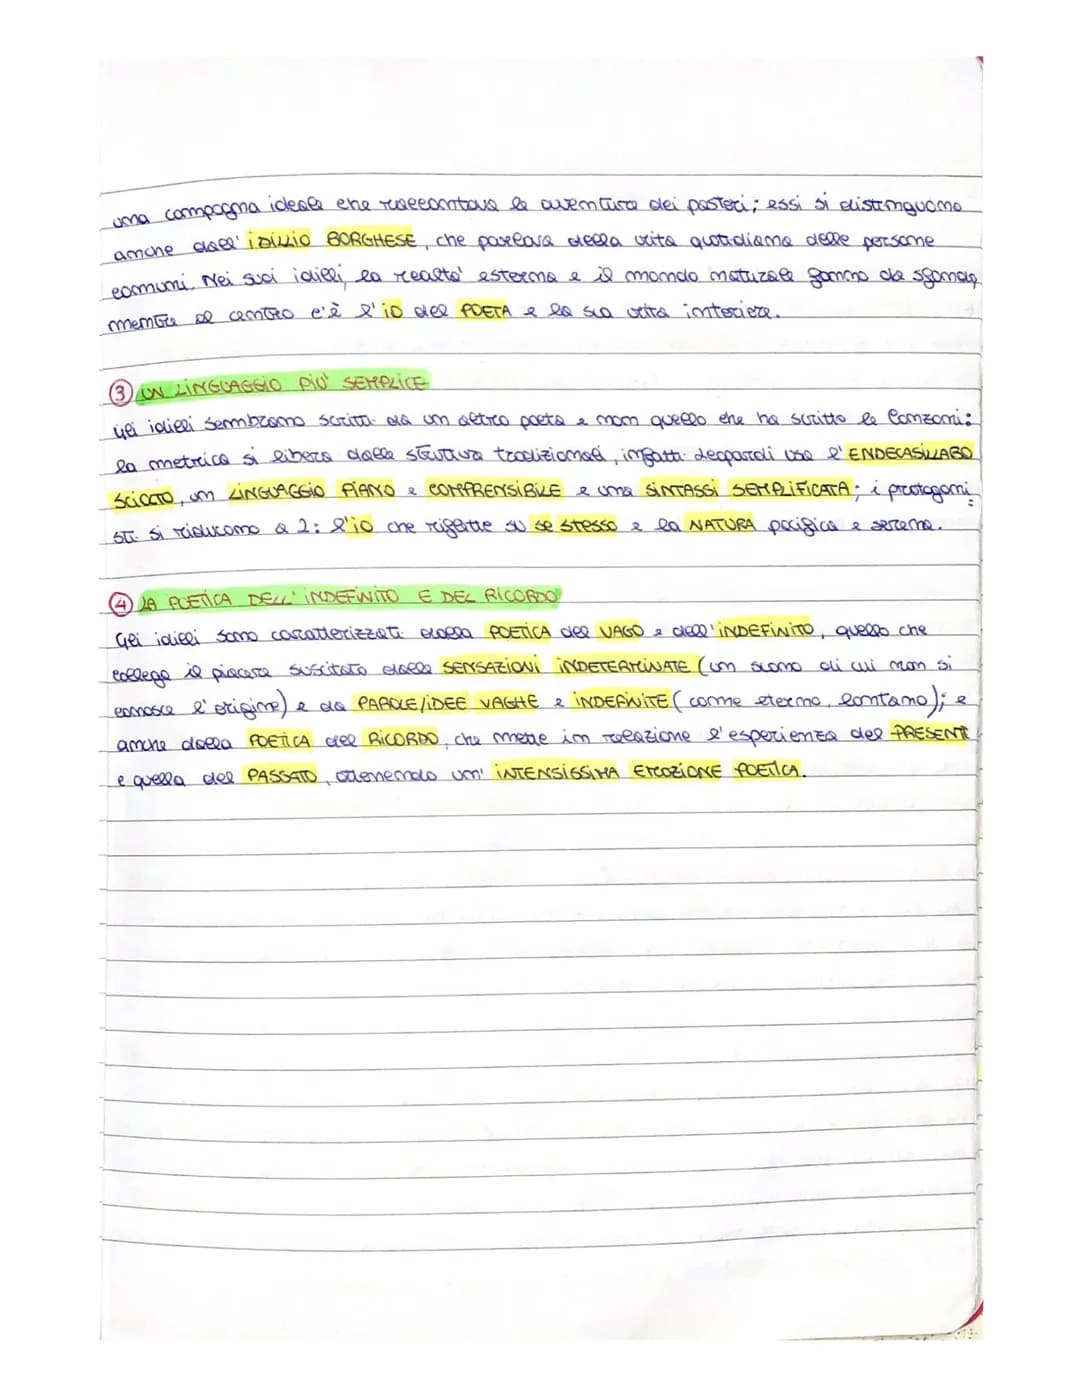 una campagna ideale che raccontava le avventure dei pastori; essi si distinguono
anche dall' IDILLIO BORGHESE, che parlava della vita quotidiana delle persone
comuni. Nei suoi idilli, la realtà esterna e il mondo naturale fanno da sfondo,
mentre al centro c'è l'IO del POETA e la sua vita interiore.
③ UN LINGUAGGIO PIU' SEMPLICE
Gli idilli sembrano scritti da un altro poeta e non quello che ha scritto le Canzoni:
la metrica si libera dalla struttura tradizionale, infatti Leopardi usa l'ENDECASILLABO
SCIOLTO, un LINGUAGGIO PIANO e COMPRENSIBILE e una SINTASSI SEMPLIFICATA; i protagoni
sti si riducono a 2: l'io che riflette su se stesso e la NATURA pacifica e serena.
④ LA POETICA DELL' INDEFINITO E DEL RICORDO
Gli idilli sono caratterizzati dalla POETICA del VAGO e dell'INDEFINITO, quello che
collega il piacere suscitato dalle SENSAZIONI INDETERMINATE (un suono di cui non si
conosce l'origine) e da PAROLE/IDEE VAGHE e INDEFINITE (come eterno, lontano); e
anche dalla POETICA del RICORDO, che mette in relazione l'esperienza del PRESENTE
e quella del PASSATO, ottenendo un' INTENSISSIMA EMOZIONE POETICA.